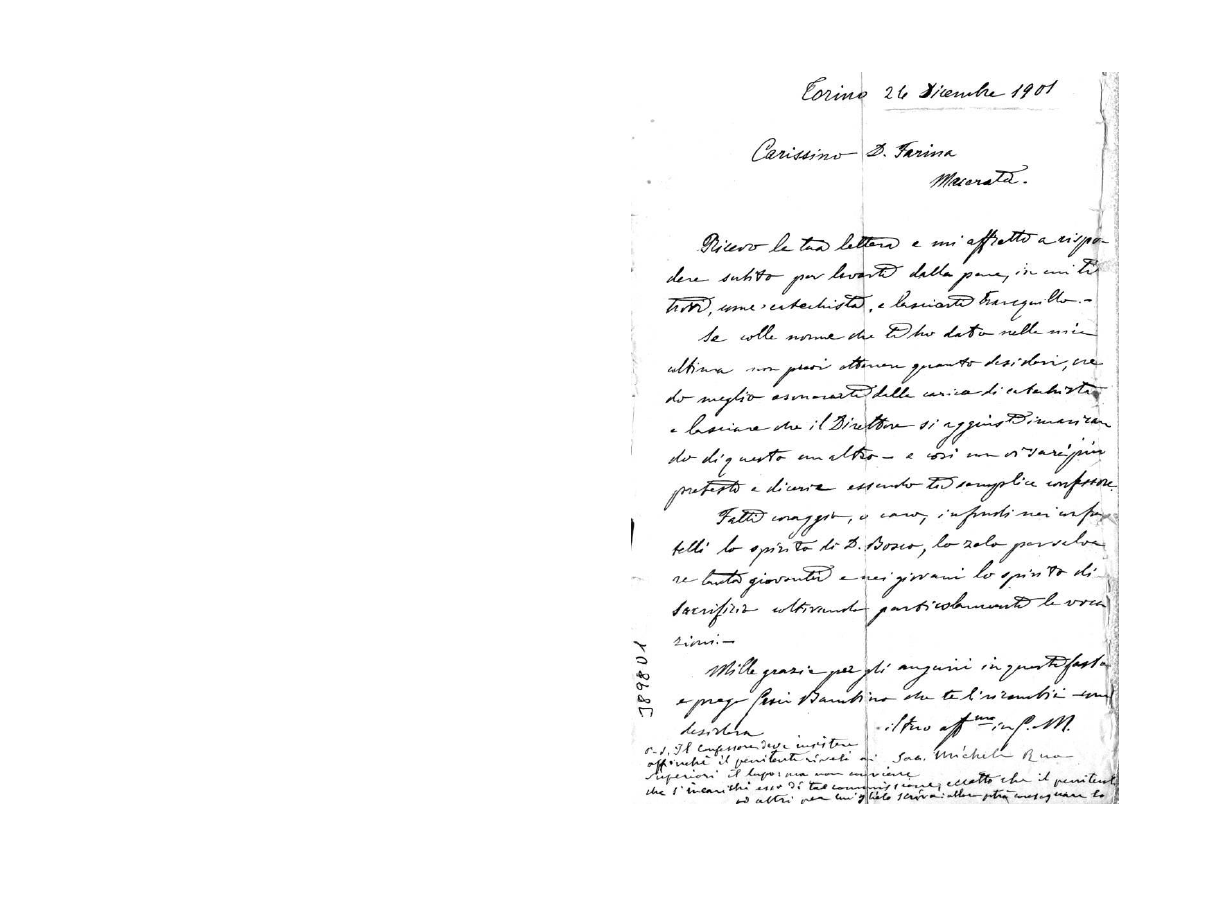 Torino 24 Dicembre 1901
Carissimo D. Farina
Macerata.
Ricevo la tua lettera e mi affretto a rispo-
dere subito per levarti dalla pena, in cui ti
trovi, come catechista, e lasciarti tranquillo.-
Se colle norme che ti ho dato nella mia
ultima non puoi ottenere quanto desideri, cre
do meglio esonerarti dalla carica di catechista
e lasciare che il Direttore si aggiusti incarican
do di questo un altro - e così non vi sarà più
pretesto e diceria essendo tu semplice confessore.
Fatti coraggio, o caro, infondi nei confra
telli lo spirito di D. Bosco, lo zelo per salva
re tanta gioventù e nei giovani lo spirito di
sacrifizio coltivando particolarmente le voca
zioni.-
Mille grazie per gli auguri in queste feste
e prego Gesù Bambino che te li ricambi come
desidera
il tuo aff.mo in G. M.
Sac. Michele Rua
P.S. Il confessore deve insistere
affinchè il penitente riveli ai
superiori il lupo, ma non conviene
che s'incarichi esso di tal commissione, eccetto che il penitente
od altri per lui glielo scriva allora potrà consegnare lo
389801